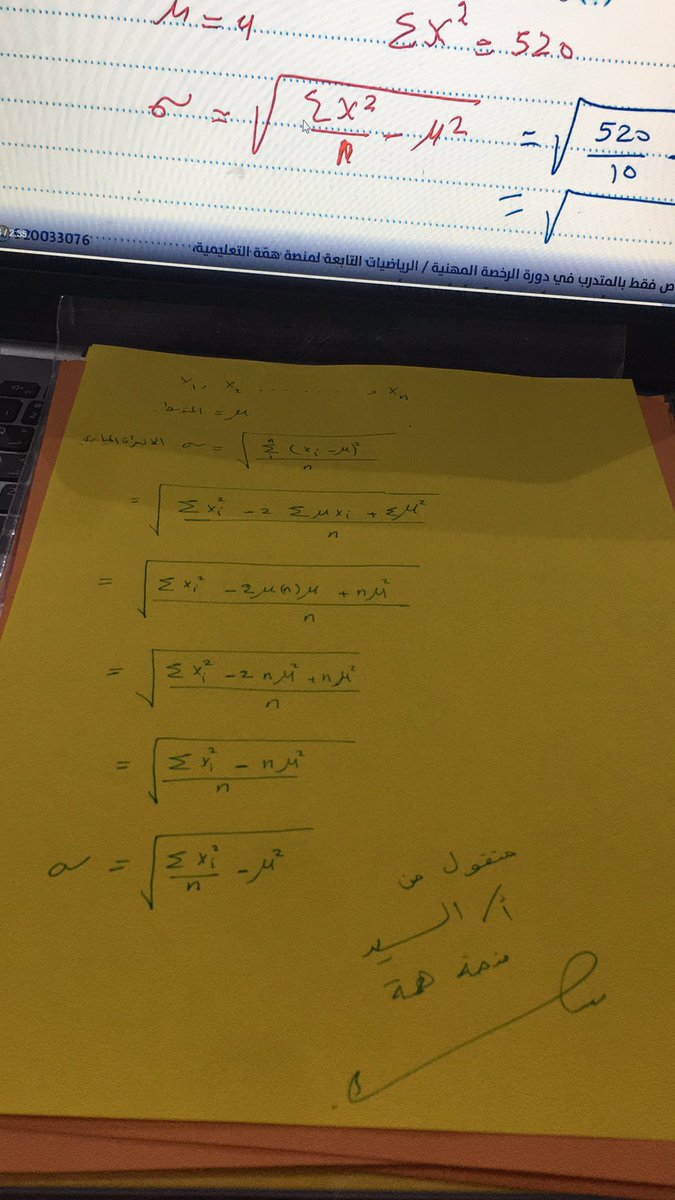 μ = 4 Σx² = 520
σ = √(Σx²/n - μ²) = √(520/10 -
= √
520033076
ص فقط بالمتدرب في دورة الرخصة المهنية / الرياضيات التابعة لمنصة همّة التعليمية،
x₁, x₂ ........., xₙ
μ = المتوسط
الانحراف المعياري σ = √(Σ(xᵢ - μ)²/n)
= √((Σxᵢ² - 2Σμxᵢ + Σμ²)/n)
= √((Σxᵢ² - 2μ(n)μ + nμ²)/n)
= √((Σxᵢ² - 2nμ² + nμ²)/n)
= √((Σxᵢ² - nμ²)/n)
σ = √(Σxᵢ²/n - μ²)
منقول من
أ/ السيد
منصة همة